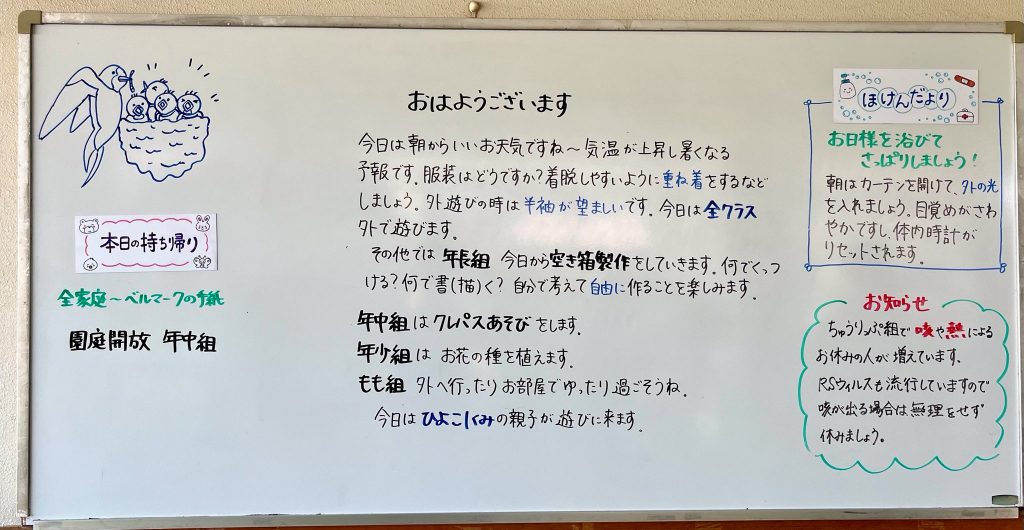 本日の持ち帰り
全家庭～ベルマークの手紙
園庭開放 年中組
おはようございます
今日は朝からいいお天気ですね～気温が上昇し暑くなる
予報です。服装はどうですか?着脱しやすいように重ね着をするなど
しましょう。外遊びの時は半袖が望ましいです。今日は全クラス
外で遊びます。
その他では 年長組 今日から空き箱製作をしていきます。何でくっつ
ける?何で書(描)く? 自分で考えて自由に作ることを楽しみます。
年中組は クレパスあそび をします。
年少組は お花の種を植えます。
もも組 外へ行ったりお部屋でゆったり過ごそうね。
今日は ひよこぐみの親子が遊びに来ます。
ほけんだより
お日様を浴びて
さっぱりしましょう!
朝はカーテンを開けて、外の光
を入れましょう。目覚めがさわ
やかですし、体内時計が
リセットされます。
お知らせ
ちゅうりっぷ組で 咳や熱による
お休みの人が増えています。
RSウィルスも流行していますので
咳が出る場合は無理をせず
休みましょう。